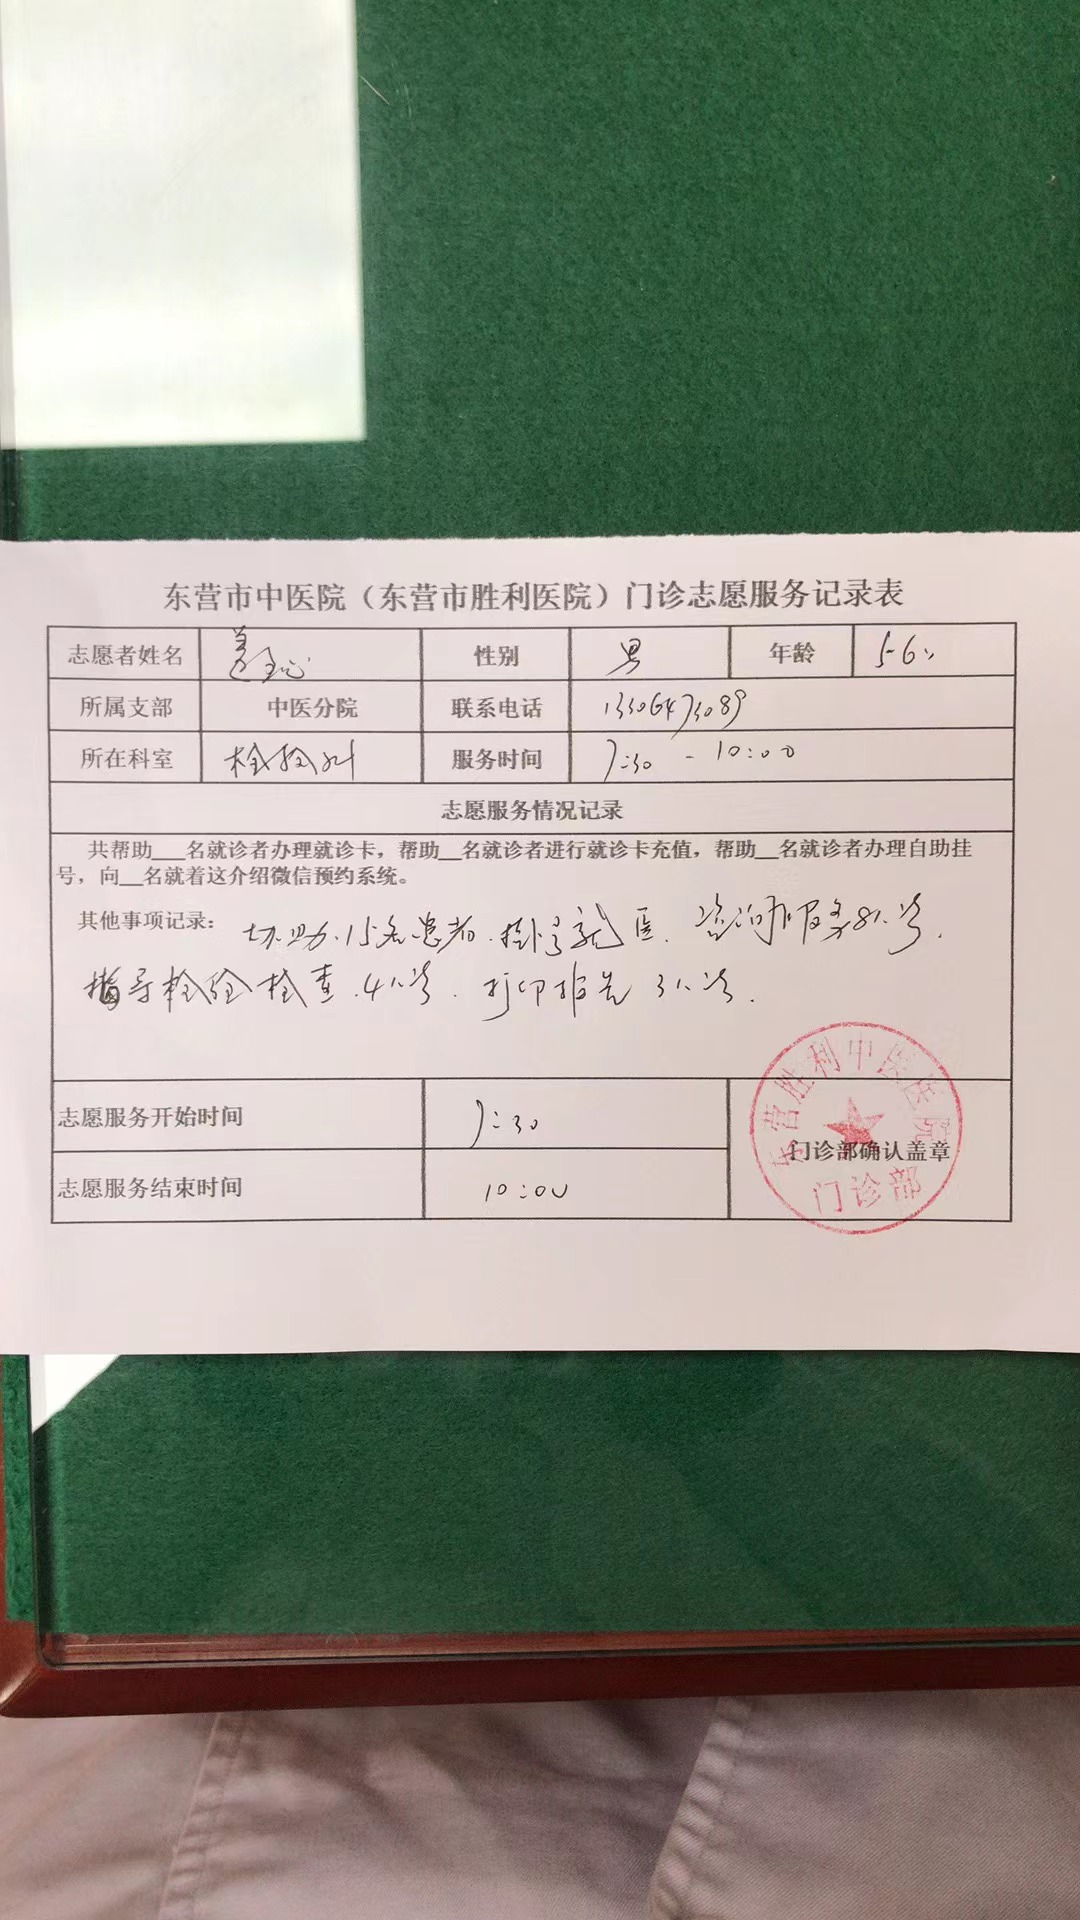 东营市中医院（东营市胜利医院）门诊志愿服务记录表
志愿者姓名 姜 性别 男 年龄 56
所属支部 中医分院 联系电话 13306473089
所在科室 检验科 服务时间 7:30 - 10:00
志愿服务情况记录
共帮助___名就诊者办理就诊卡，帮助__名就诊者进行就诊卡充值，帮助__名就诊者办理自助挂
号，向__名就着这介绍微信预约系统。
其他事项记录： 协助15名患者.挂号就医、咨询服务8人次.
指导检验检查.4人次.打印报告3人次.
志愿服务开始时间 7:30
门诊部确认盖章
志愿服务结束时间 10:00
东营胜利中医医院
门诊部